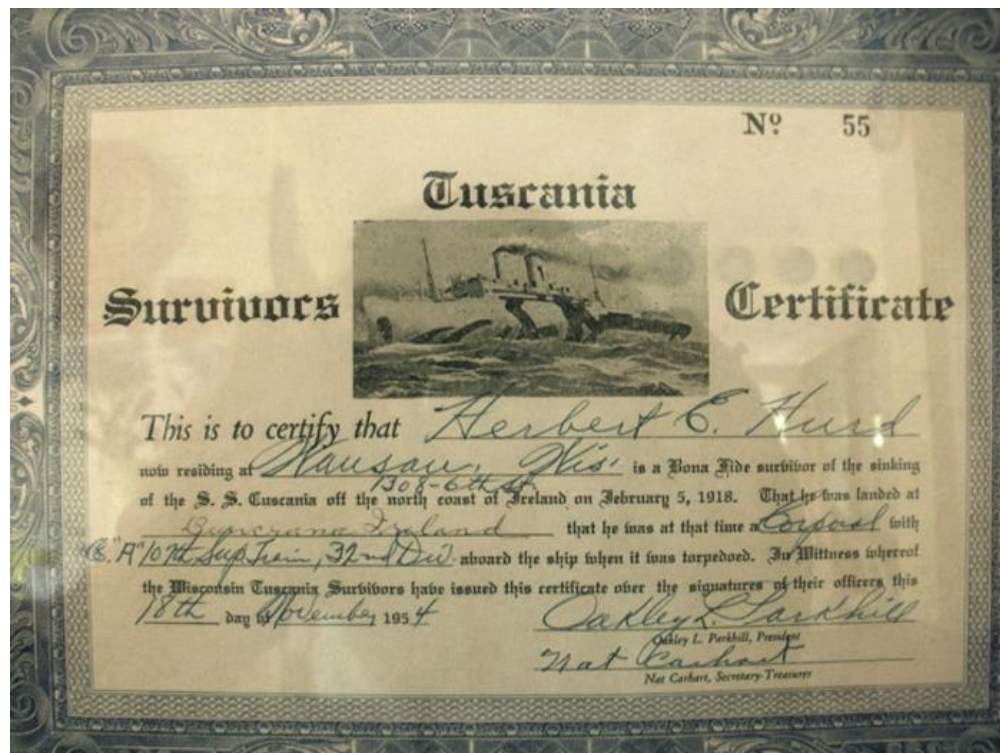 Nº 55
Tuscania
Survivors Certificate
This is to certify that Herbert E. Hurd
now residing at Wausau, Wis. is a Bona Fide survivor of the sinking
1308-6th St.
of the S. S. Tuscania off the north coast of Ireland on February 5, 1918. That he was landed at
Buncrana Ireland that he was at that time a Corporal with
Co. "A" 107th Sup Train, 32nd Div. aboard the ship when it was torpedoed. In Wittness whereof
the Wisconsin Tuscania Survivors have issued this certificate over the signatures of their officers this
18th day of November, 1954 Oakley L. Parkhill
Oakley L. Parkhill, President
Nat Carhart
Nat Carhart, Secretary-Treasurer